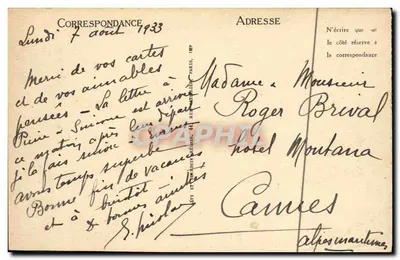 CORRESPONDANCE
ADRESSE
Lundi 7 août 1933
Merci de vos cartes
et de vos aimables
pensées - La lettre à
Pierre - Simone est arrivée
ce matin, après leur départ
je la fais suivre - Nous
avons temps superbe
Bonne fin de vacances
et à bientôt!
& bonnes amitiés
N'écrire que sur
le côté réservé à
la correspondance
Madame & Monsieur
Roger Breval
hôtel Montana
Cannes
Alpes maritimes
CPAPHIL